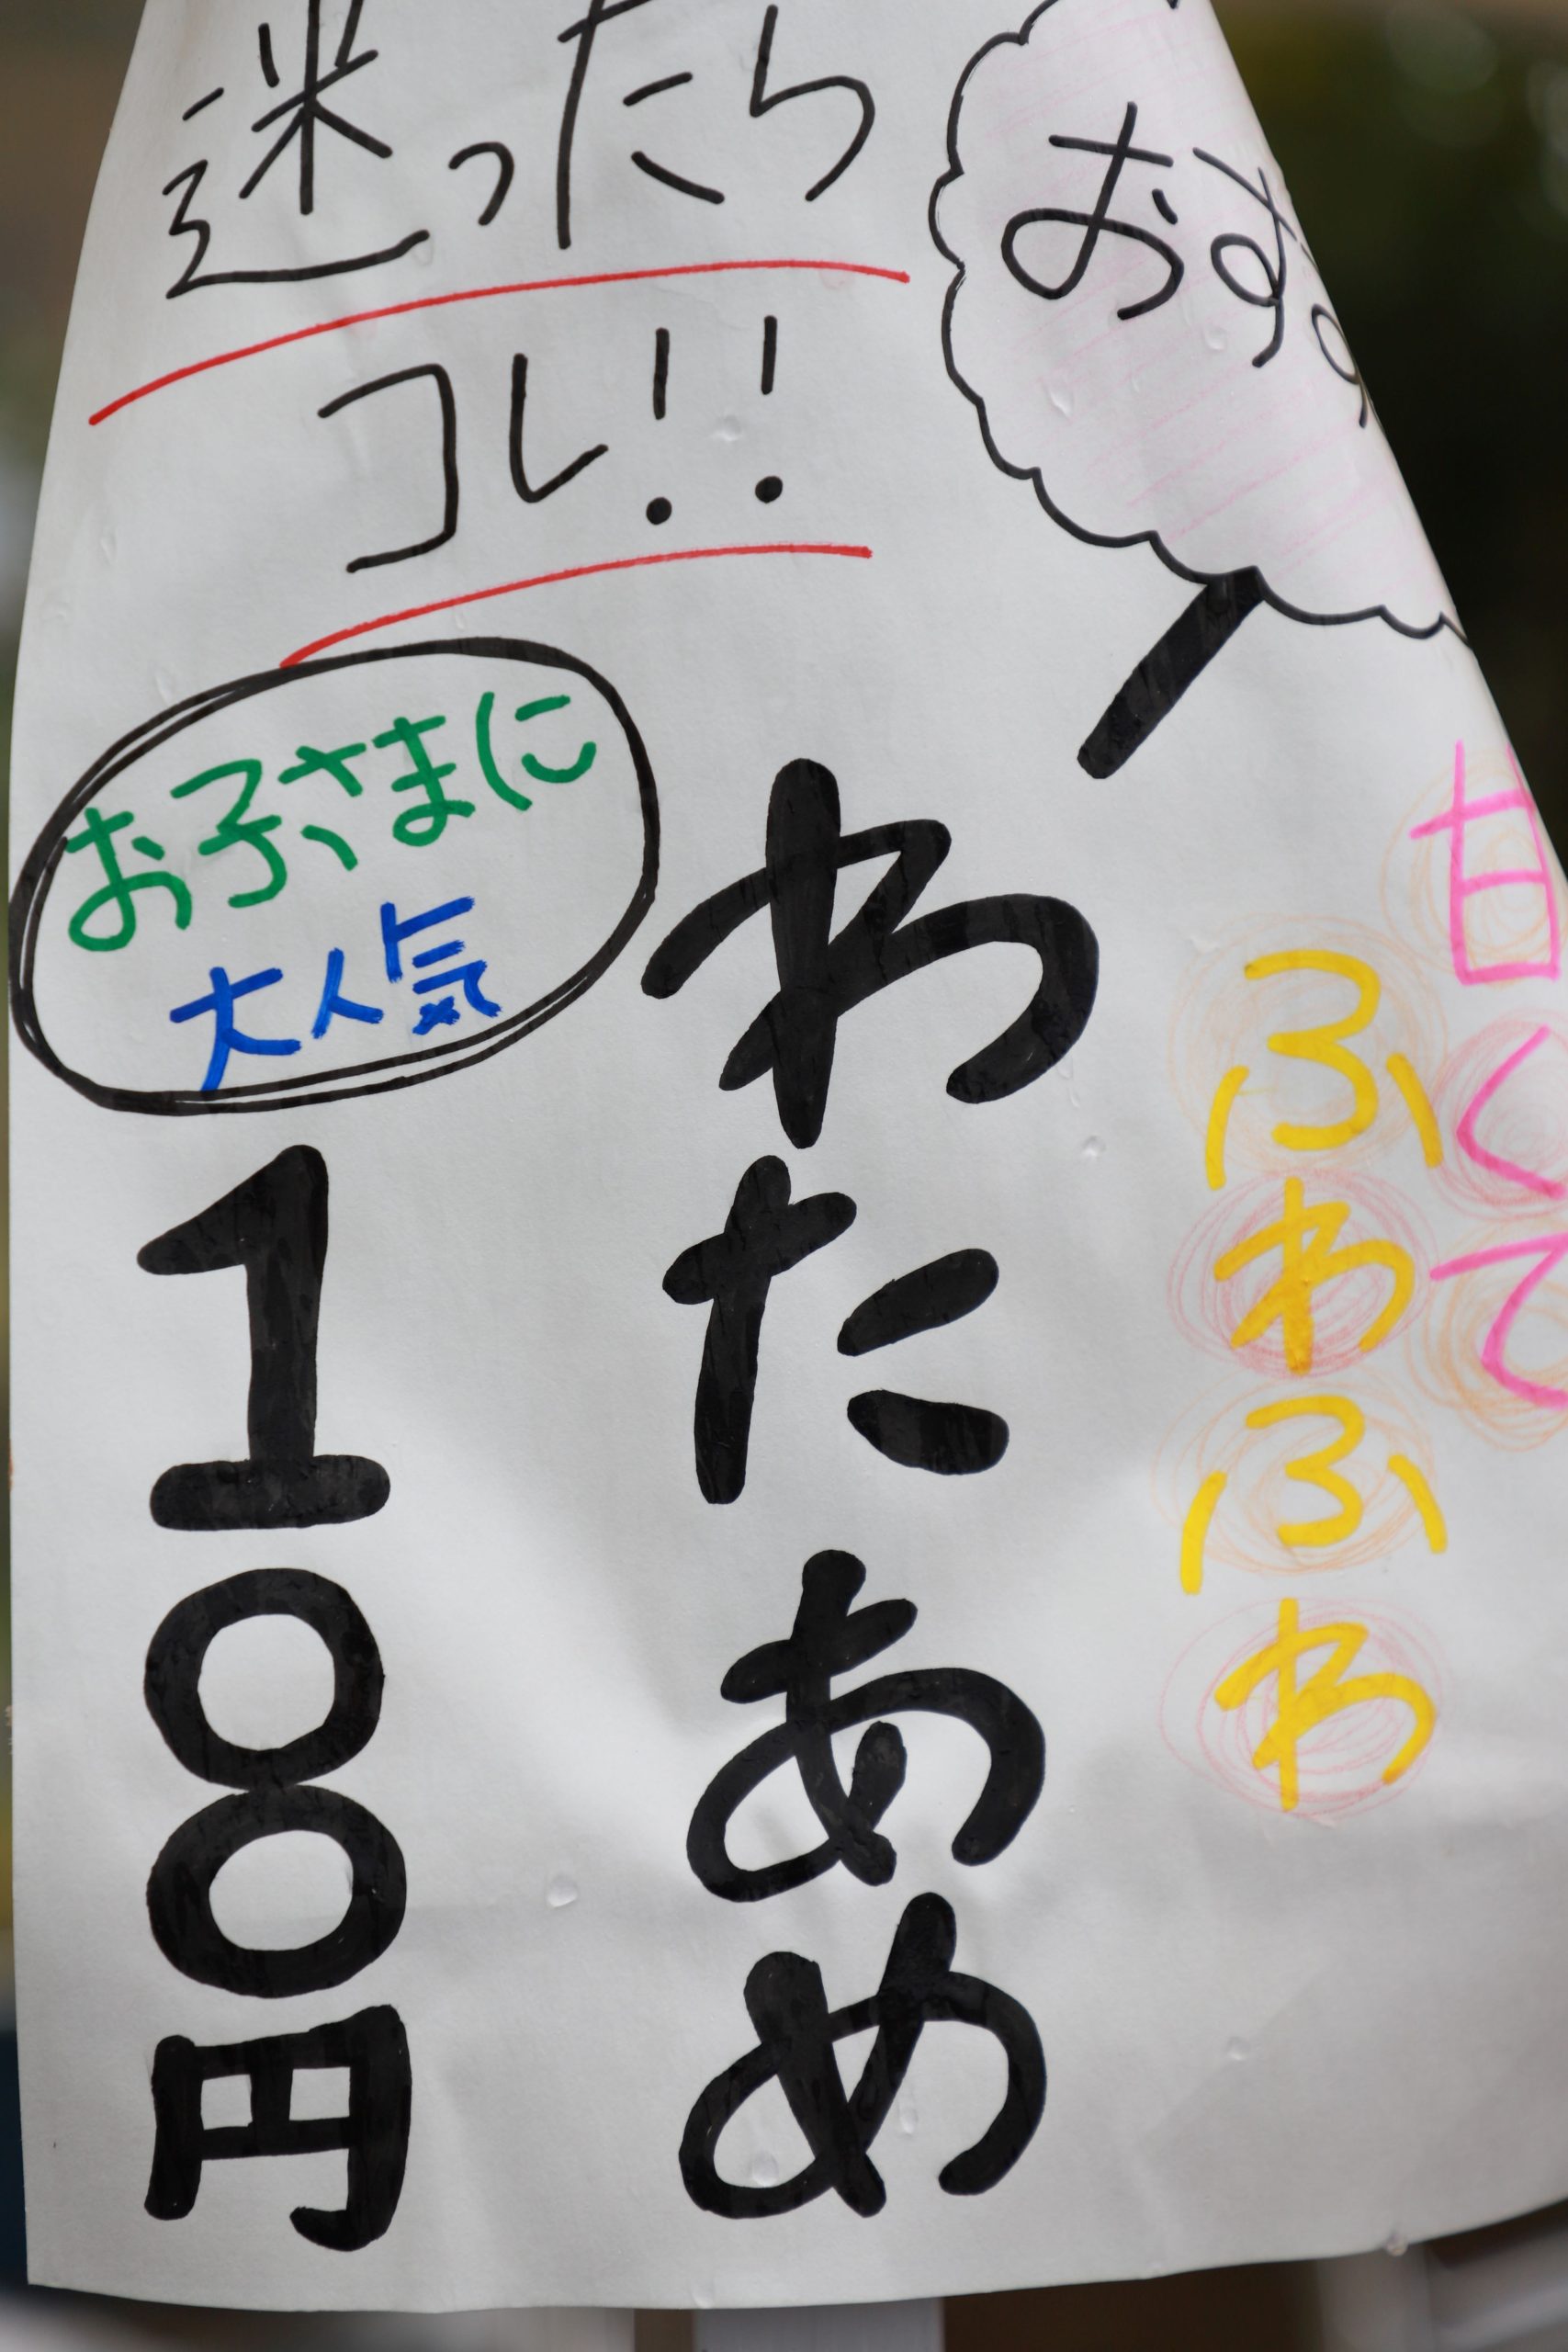 迷ったら
コレ!!
おす
甘くて
ふわふわ
わたあめ
お子さまに
大人気
100円